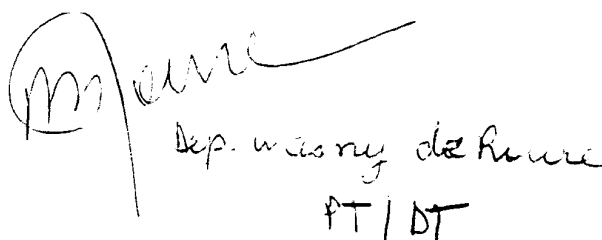 Dep. Wasny de Roure
PT / DF